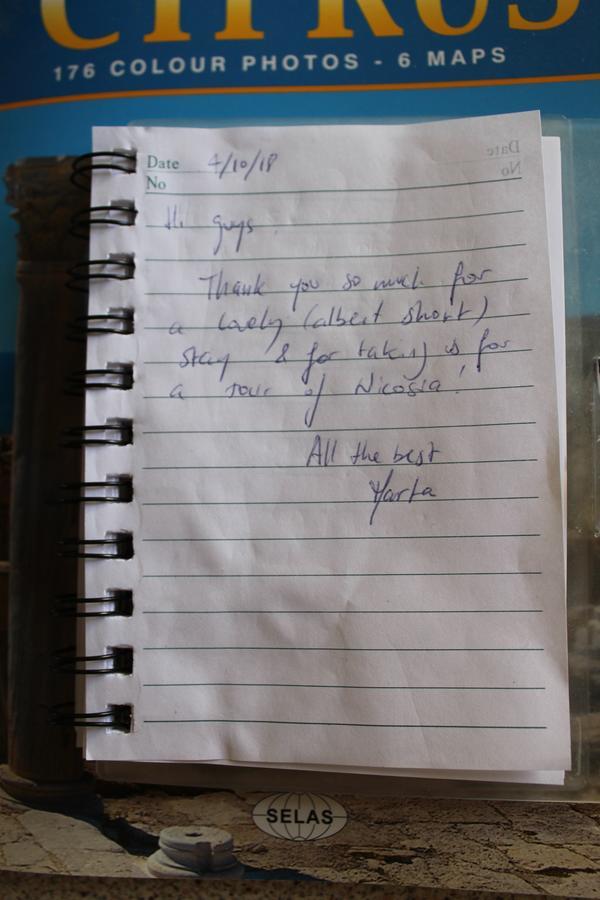 CYPRUS
176 COLOUR PHOTOS - 6 MAPS
Date 4/10/18
No
Date
No
Hi guys
Thank you so much for
a lovely (albeit short)
stay & for taking us for
a tour of Nicosia!
All the best
Marta
SELAS